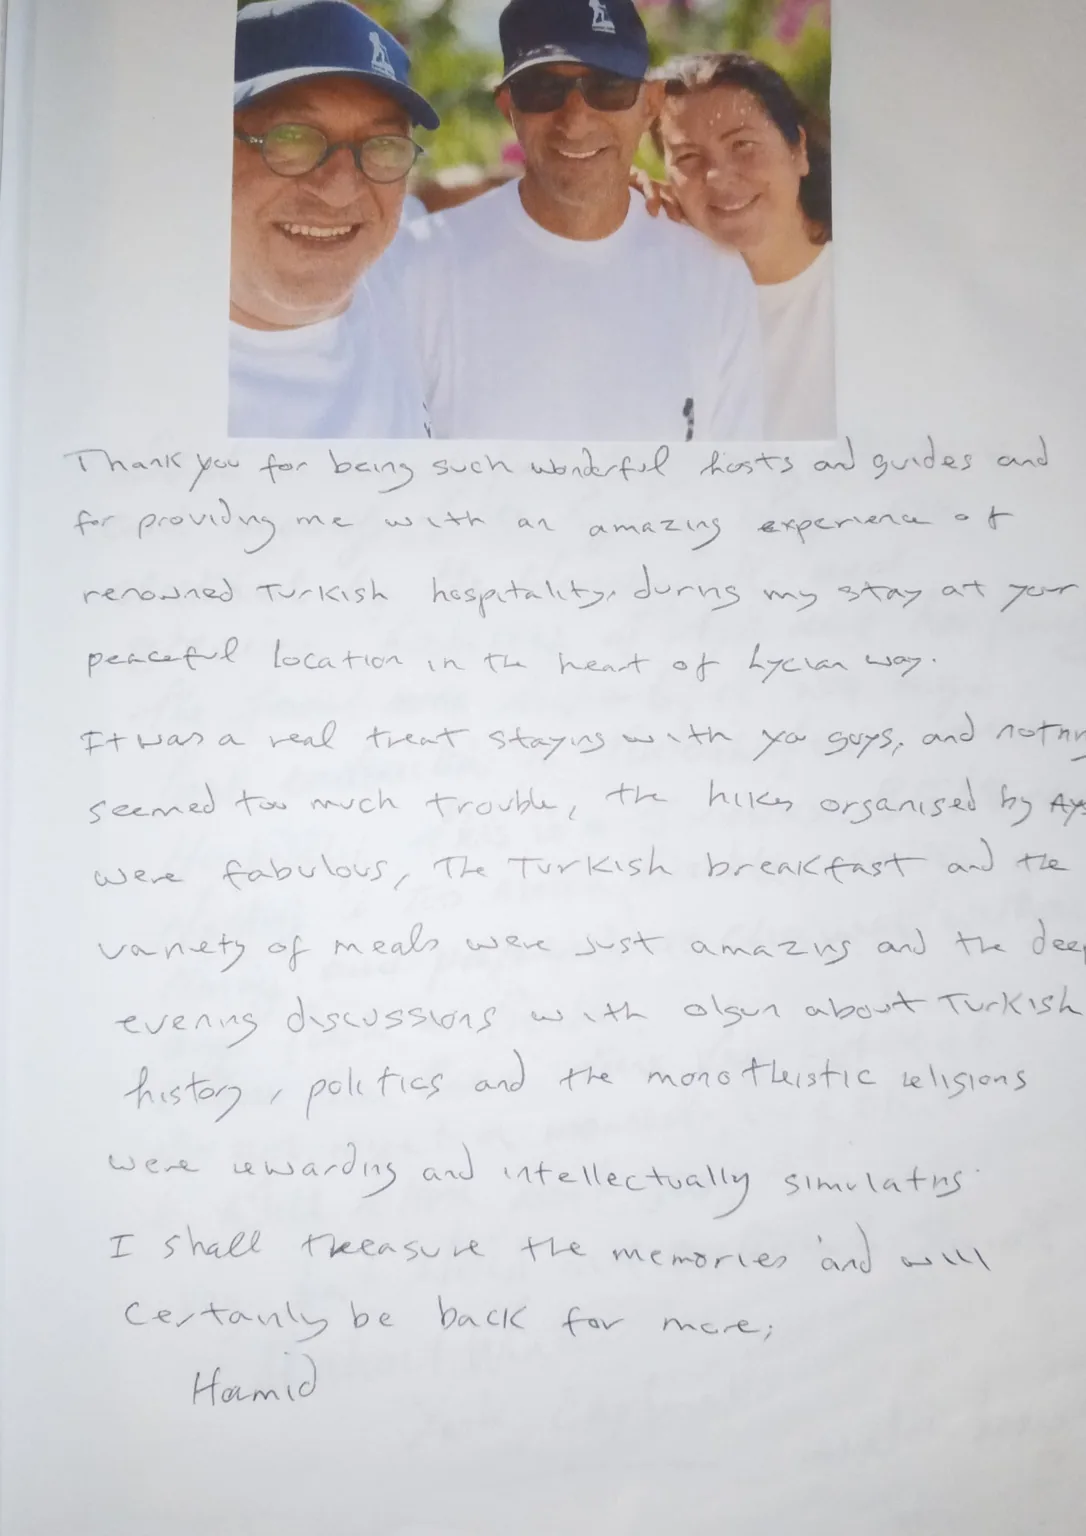 Thank you for being such wonderful hosts and guides and
for providing me with an amazing experience of
renowned Turkish hospitality, during my stay at your
peaceful location in the heart of Lycian way.
It was a real treat staying with yo guys, and
seemed too much trouble, the hikes organised by
were fabulous, The Turkish breakfast and the
variety of meals were just amazing and the deep
evening discussions with olgun about Turkish
history, politics and the monotheistic religions
were rewarding and intellectually simulating
I shall treasure the memories and will
Certainly be back for more;
Hamid